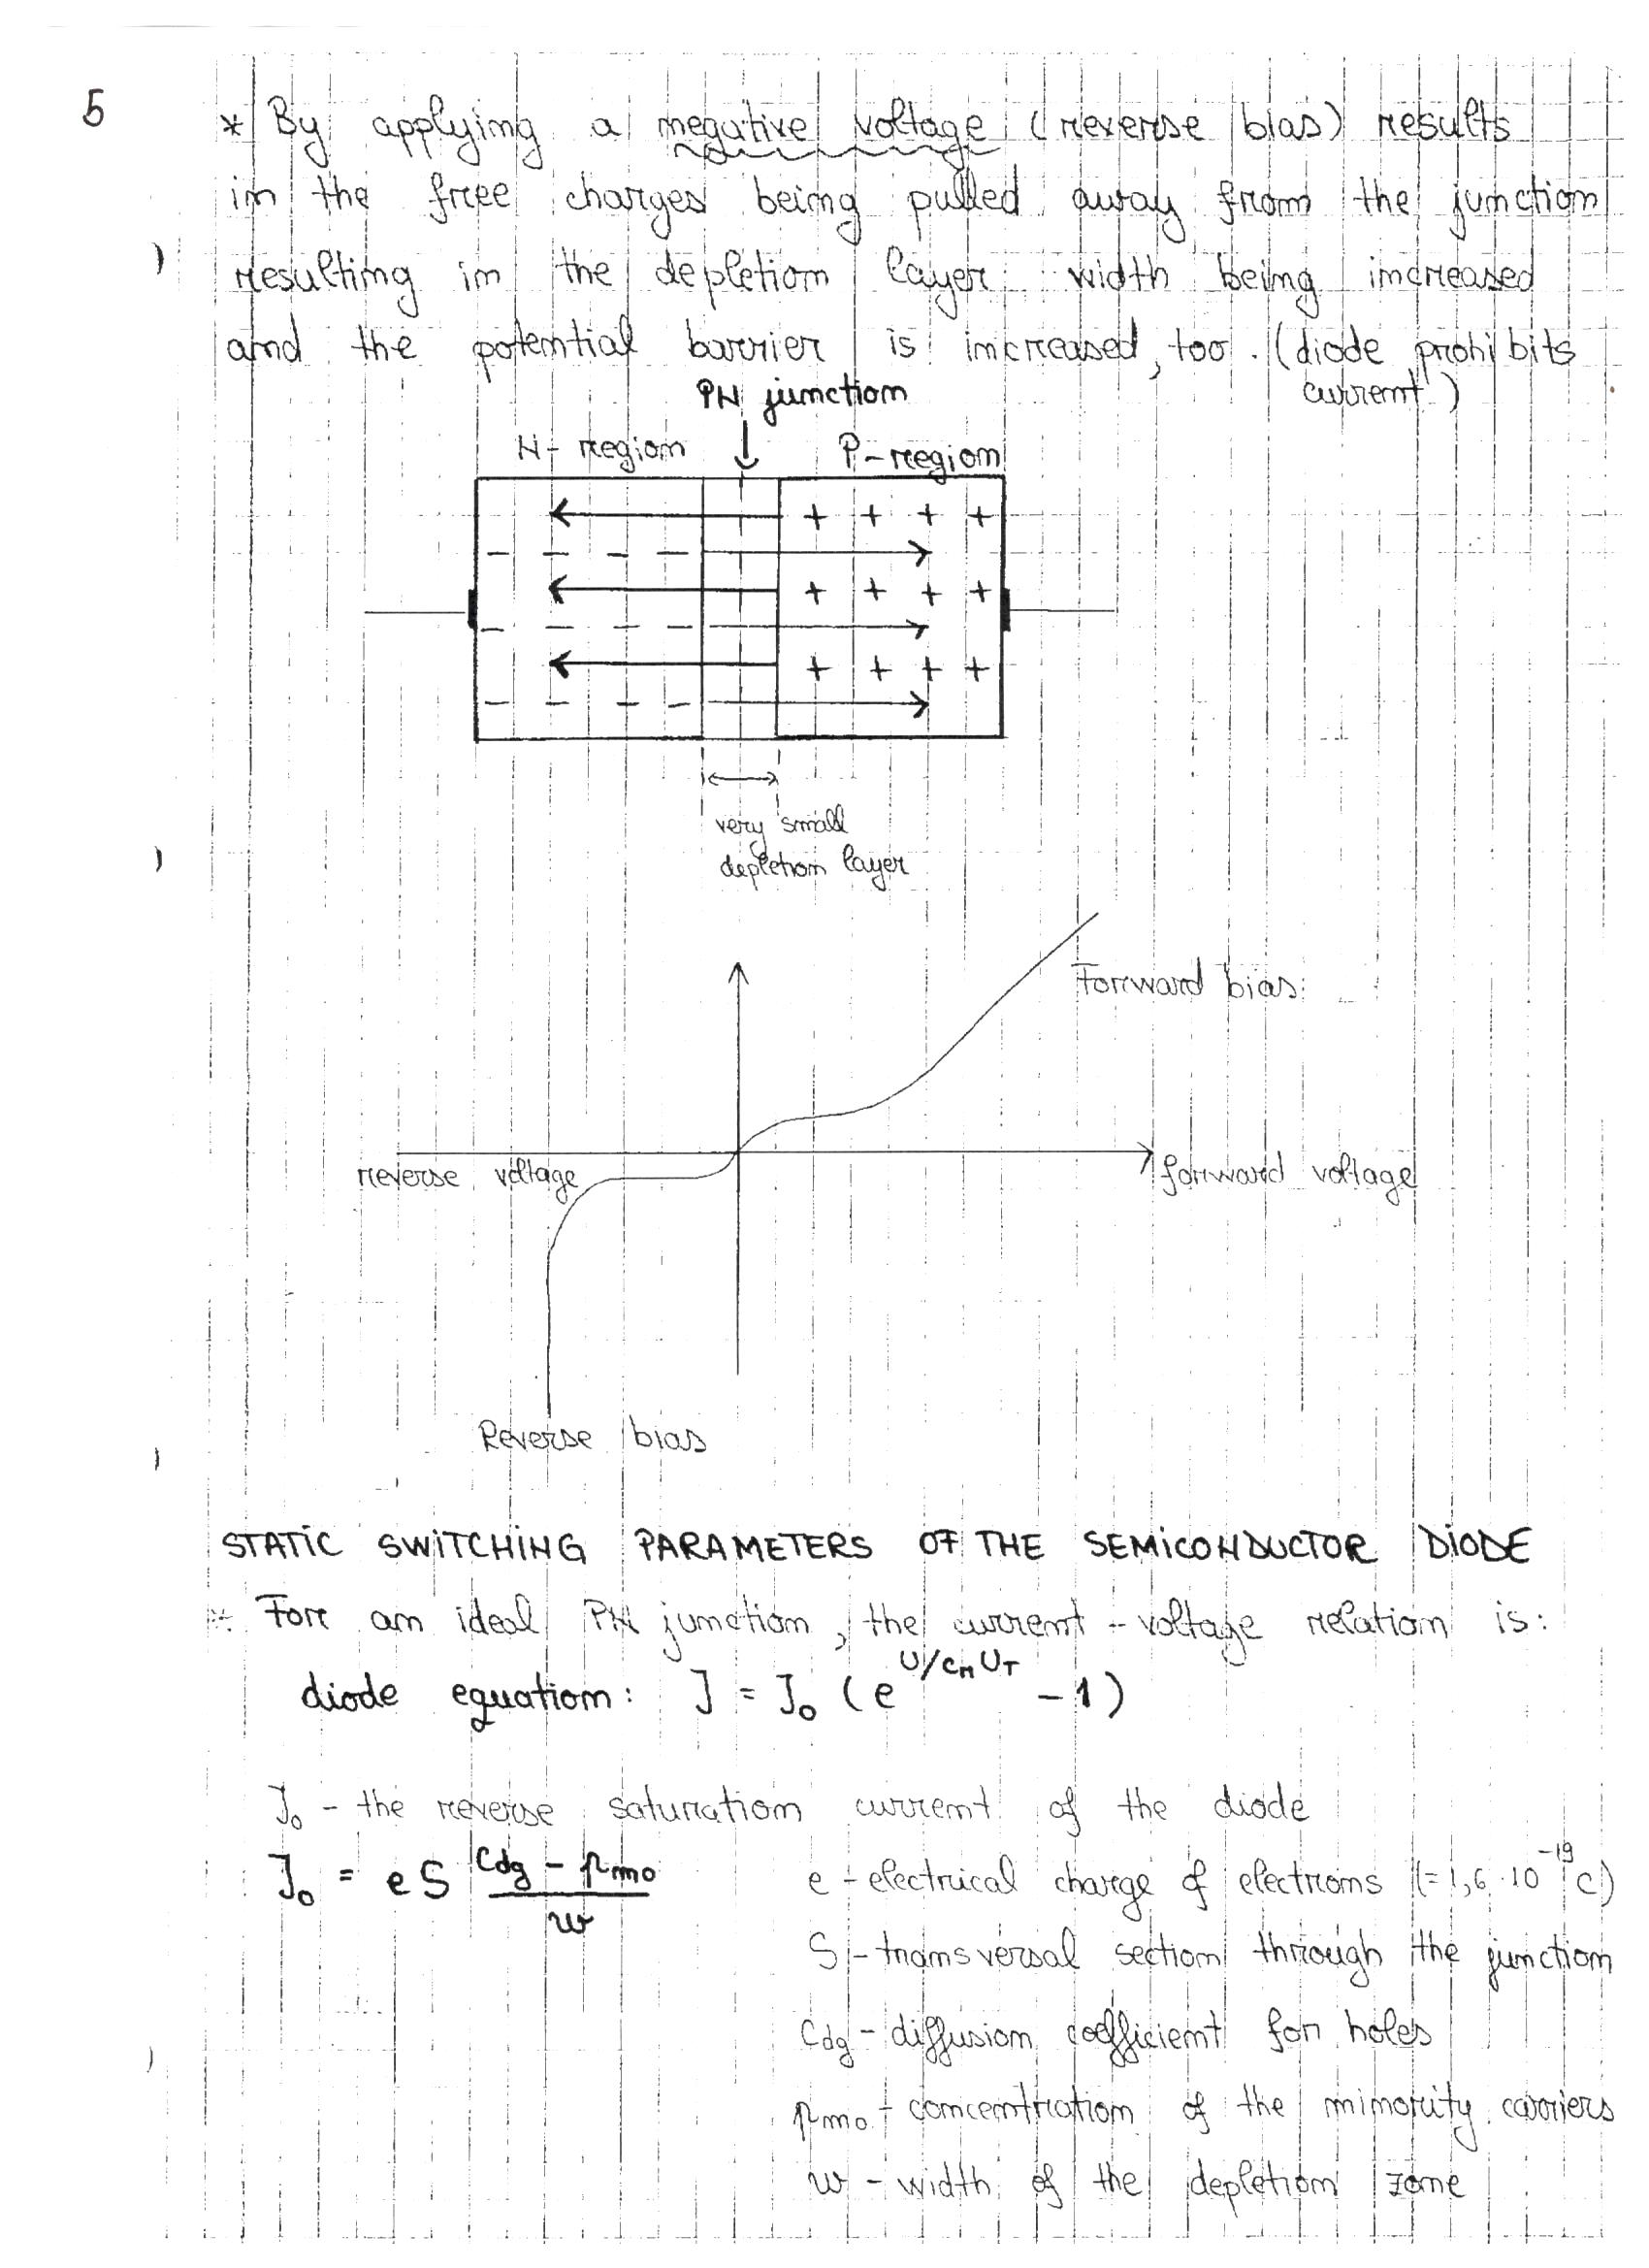 5
* By applying a negative voltage (reverse bias) results
in the free charges being pulled away from the junction
resulting in the depletion layer width being increased
and the potential barrier is increased, too. (diode prohibits
current)
PN junction
N- region
P-region
+ + + +
- - - -
+ + + +
- - - -
+ + + +
- - - -
very small
depletion layer
Forward bias
reverse voltage
forward voltage
Reverse bias
STATIC SWITCHING PARAMETERS OF THE SEMICONDUCTOR DIODE
* For an ideal PN junction, the current - voltage relation is:
diode equation: J = J₀ (e^(U/cₙU_T) - 1)
J₀ - the reverse saturation current of the diode
J₀ = eS (Cdg - pno)/w
e - electrical charge of electrons (= 1,6 · 10⁻¹⁹ C)
S - transversal section through the junction
Cdg - diffusion coefficient for holes
pno - concentration of the minority carriers
w - width of the depletion zone